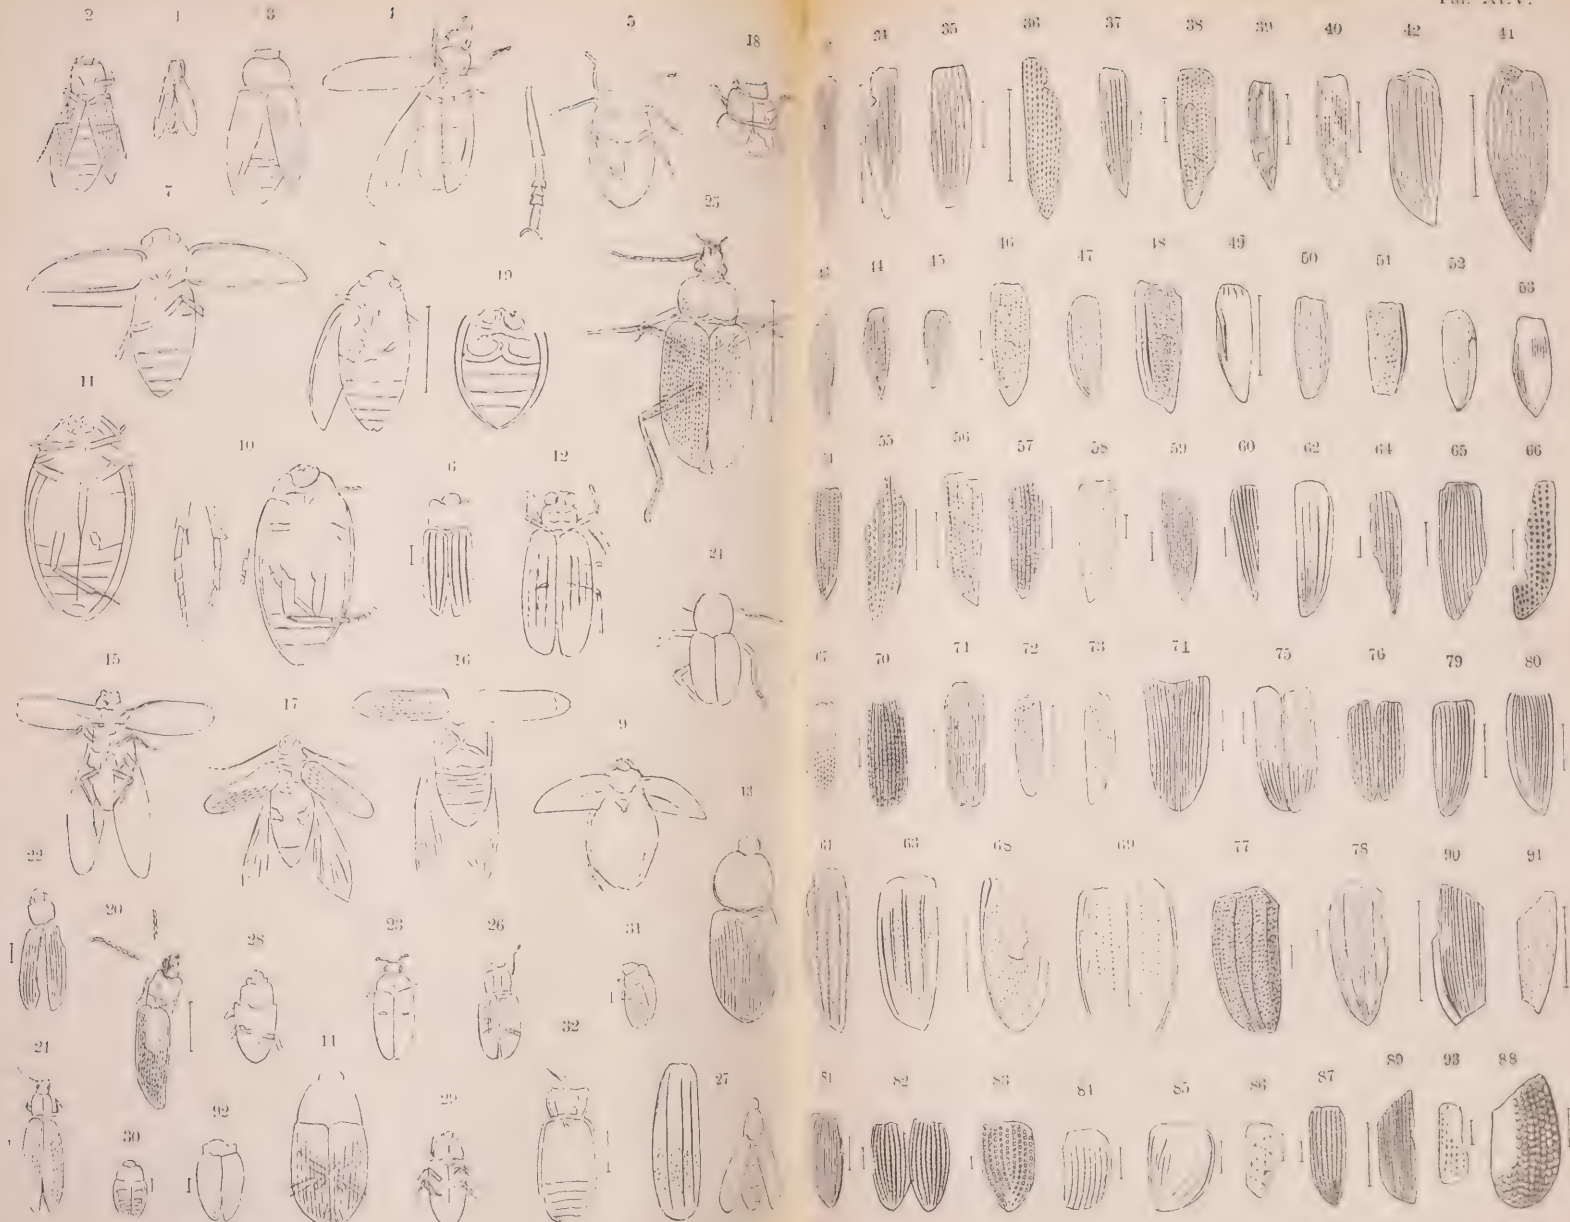 2 1 3 4 5 18
7 25
19
11 10 6 12
24
15 17 16 9
13
22 20 28 23 26 31
21 14 32
27
30 92 29
34 35 36 37 38 39 40 42 41
44 45 46 47 48 49 50 51 52 53
55 56 57 58 59 60 62 64 65 66
67 70 71 72 73 74 75 76 79 80
61 63 68 69 77 78 90 91
81 82 83 84 85 86 87 89 93 88